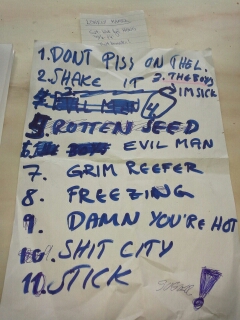 1. DONT PISS ON THE L.
2. SHAKE IT 3. THE BOYS
I'M SICK
EVIL MAN 4
5 ROTTEN SEED
6. EVIL MAN
7. GRIM REEFER
8. FREEZING
9 DAMN YOU'RE HOT
10. SHIT CITY
11. STICK